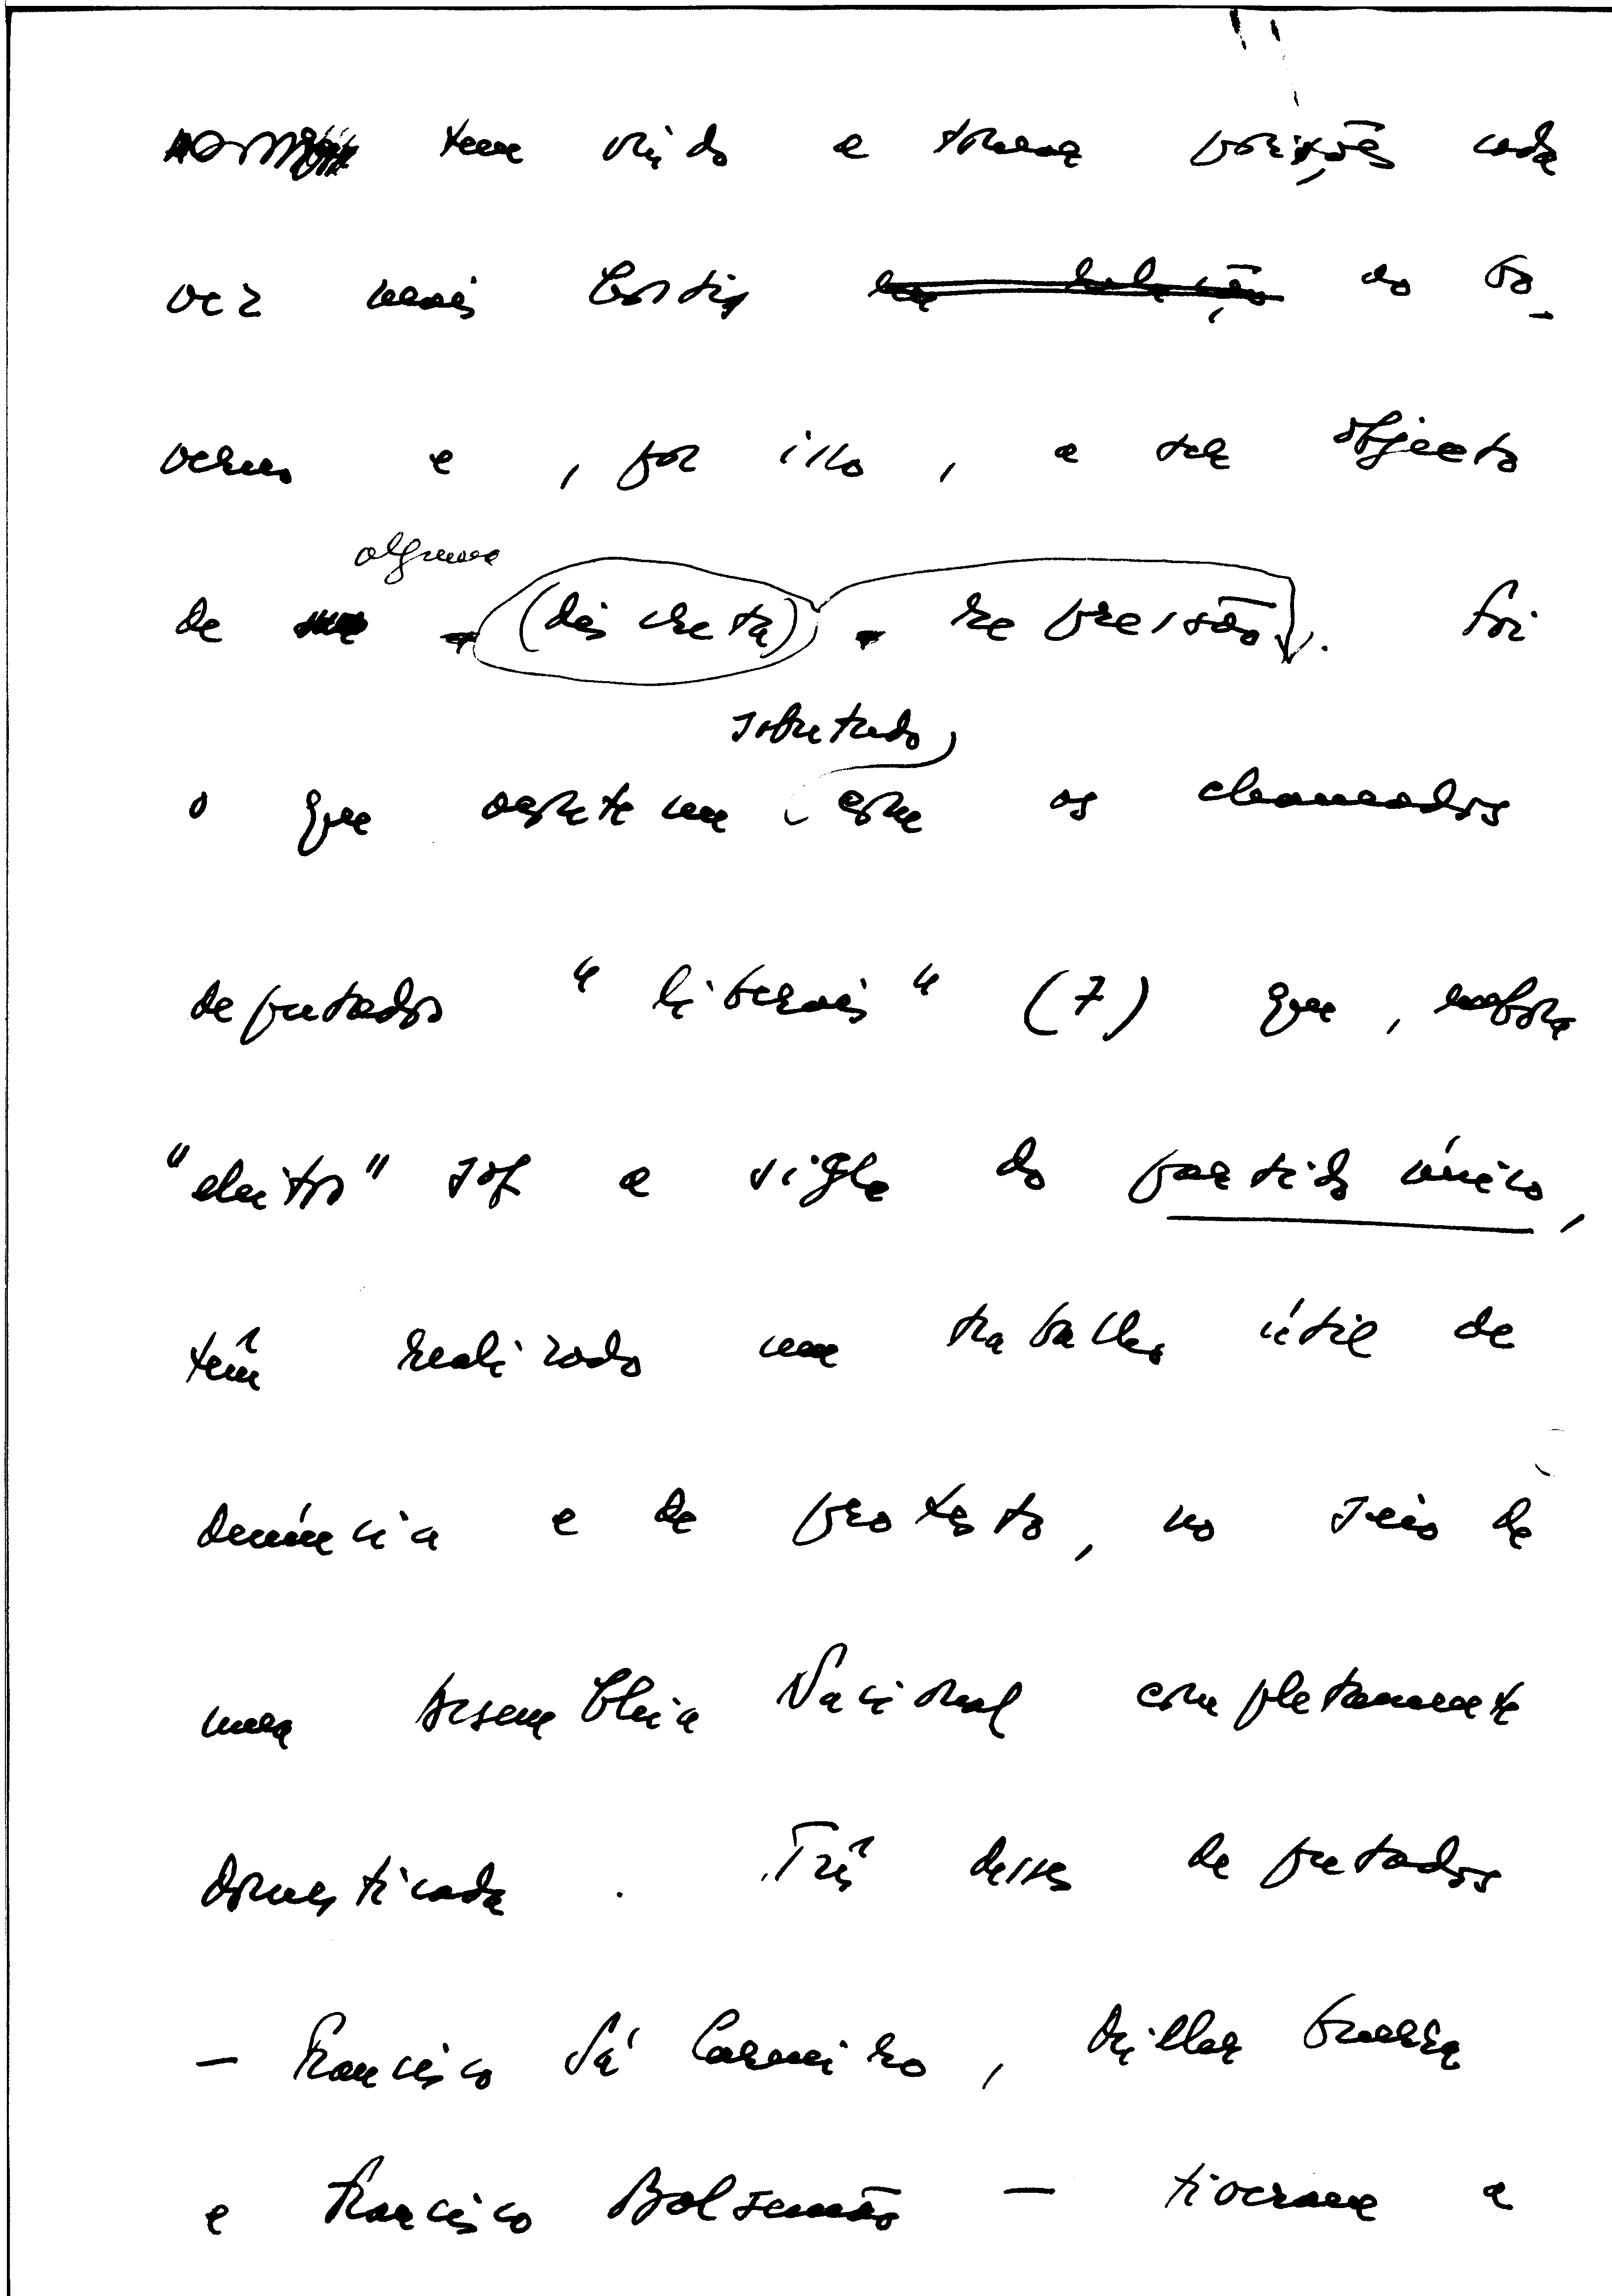 tem vindo a tomar posições cada
vez mais hostis em relação ao Go-
verno e, por isso, a ser objecto
alguma
de (discreta) repressão. Foi
sobretudo
o que ocorreu com os chamados
deputados "liberais" (7) que, embora
"eleitos" sob a sigla do partido único,
têm realizado um trabalho útil de
denúncia e de protesto, no seio de
uma Assembleia Nacional completamente
domesticada. Três desses deputados
— Francisco Sá Carneiro, Miller Guerra
e Francisco Balsemão — tiveram a